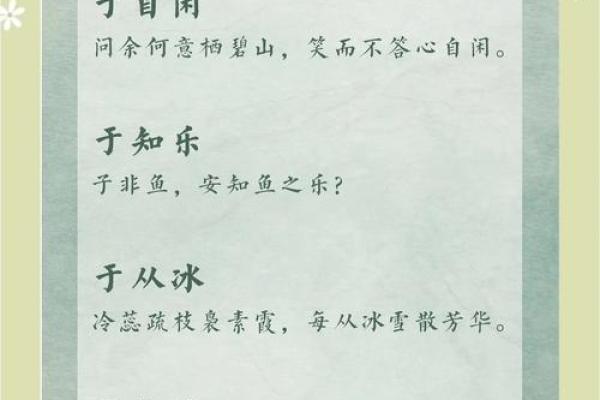 于自闲
问余何意栖碧山，笑而不答心自闲。
于知乐
子非鱼，安知鱼之乐？
于从冰
冷蕊疏枝袅素霞，每从冰雪散芳华。